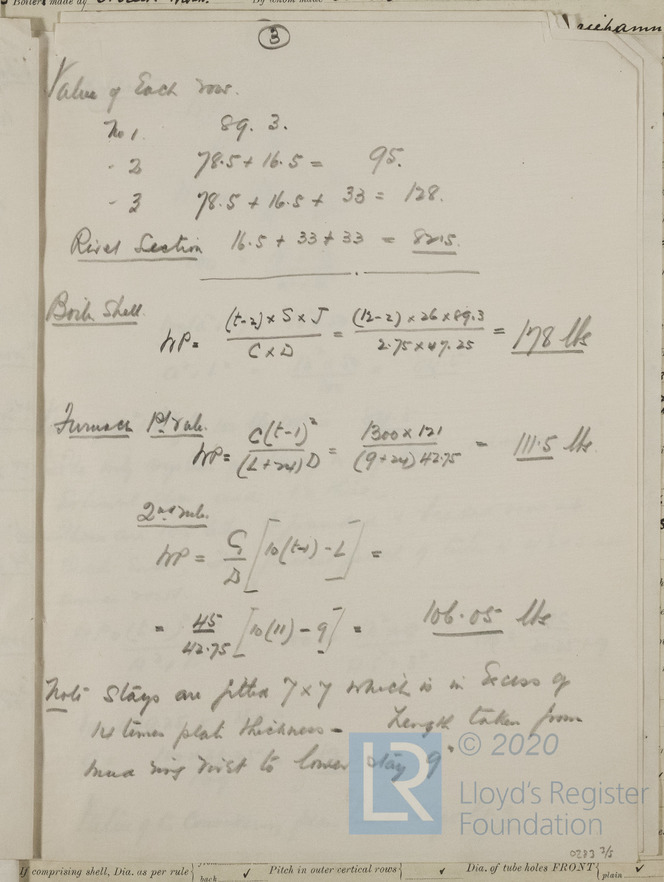 Boiler made by
By whom made
3
Value of Each row.
No 1. 89. 3.
- 2 78.5 + 16.5 = 95.
- 3 78.5 + 16.5 + 33 = 128.
Rivet Section 16.5 + 33 + 33 = 82.5.
Boiler Shell.
WP = (t-2) × S × J / C × D = (12-2) × 26 × 89.3 / 2.75 × 47.25 = 178 lbs
Furnace 1st rule.
WP = C(t-1)² / (L+24)D = 1300 × 121 / (9+24) 42.75 = 111.5 lbs.
2nd rule.
WP = C/D [10(t-1) - L] =
= 45/42.75 [10(11) - 9] = 106.05 lbs
Note Stays are fitted 7 × 7 which is in Excess of
14 times plate thickness - Length taken from
mud ring rivet to lower stay 9"
© 2020
LR
Lloyd's Register
Foundation
0283 2/5
If comprising shell, Dia. as per rule
back
Pitch in outer vertical rows
Dia. of tube holes FRONT
plain